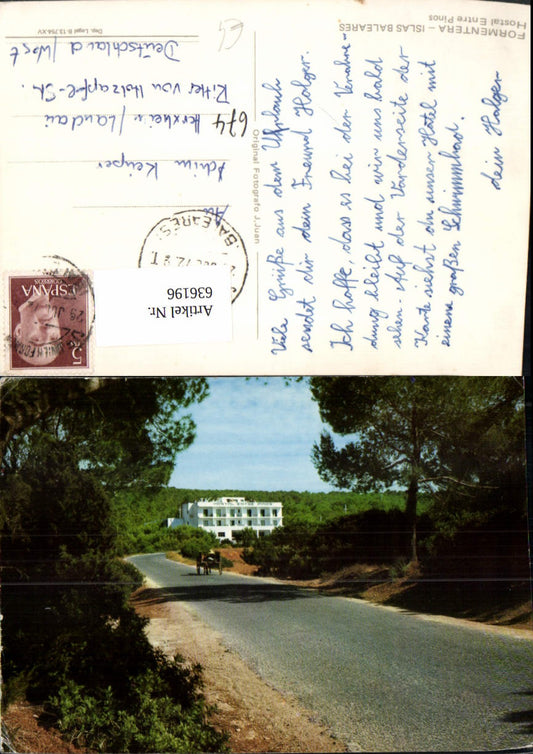 FORMENTERA – ISLAS BALEARES
Hostal Entre Pinos
Viele Grüße aus dem Urlaub
sendet dir dein Freund Holger.
Ich hoffe, dass es bei der Verabre
dung bleibt und wir uns bald
sehen. Auf der Vorderseite der
Karte siehst du unser Hotel mit
einem großen Schwimmbad.
dein Holger
Original Fotografo J. Juan
An
674
Herxheim/Landau
Ritter von Holzapfel-Str.
Deutschland/West
Dep. Legal B-13.754-XV
BALEARES
ESPAÑA
CORREOS
5
Artikel Nr.
636196